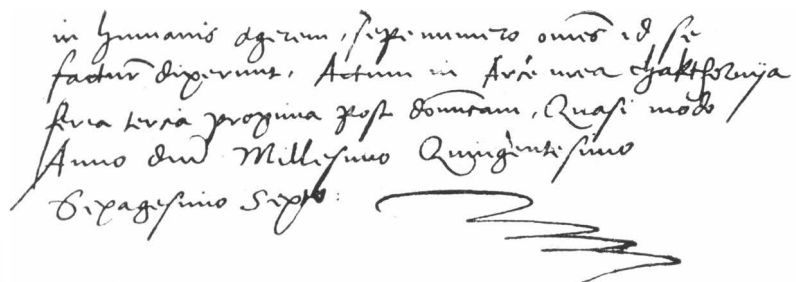 in humanis agerem, sepenumero omēs id se
factur̄ dixerunt. Actum in Arce mea Chakthornya
feria tercia proxima post domīcam, Quasi modo
Anno dnī Millesimo Quingentesimo
Sexagesimo Sexto: